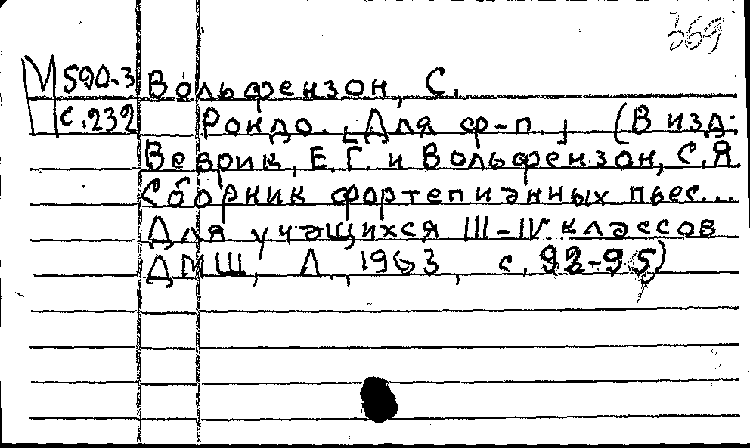 369
М 590-3 Вольфензон, С.
с.232 Рондо. [Для ф-п.] (В изд:
Веврик, Е.Г. и Вольфензон, С.Я
Сборник фортепианных пьес...
Для учащихся III-IV классов
ДМШ, Л., 1963, с. 92-95)